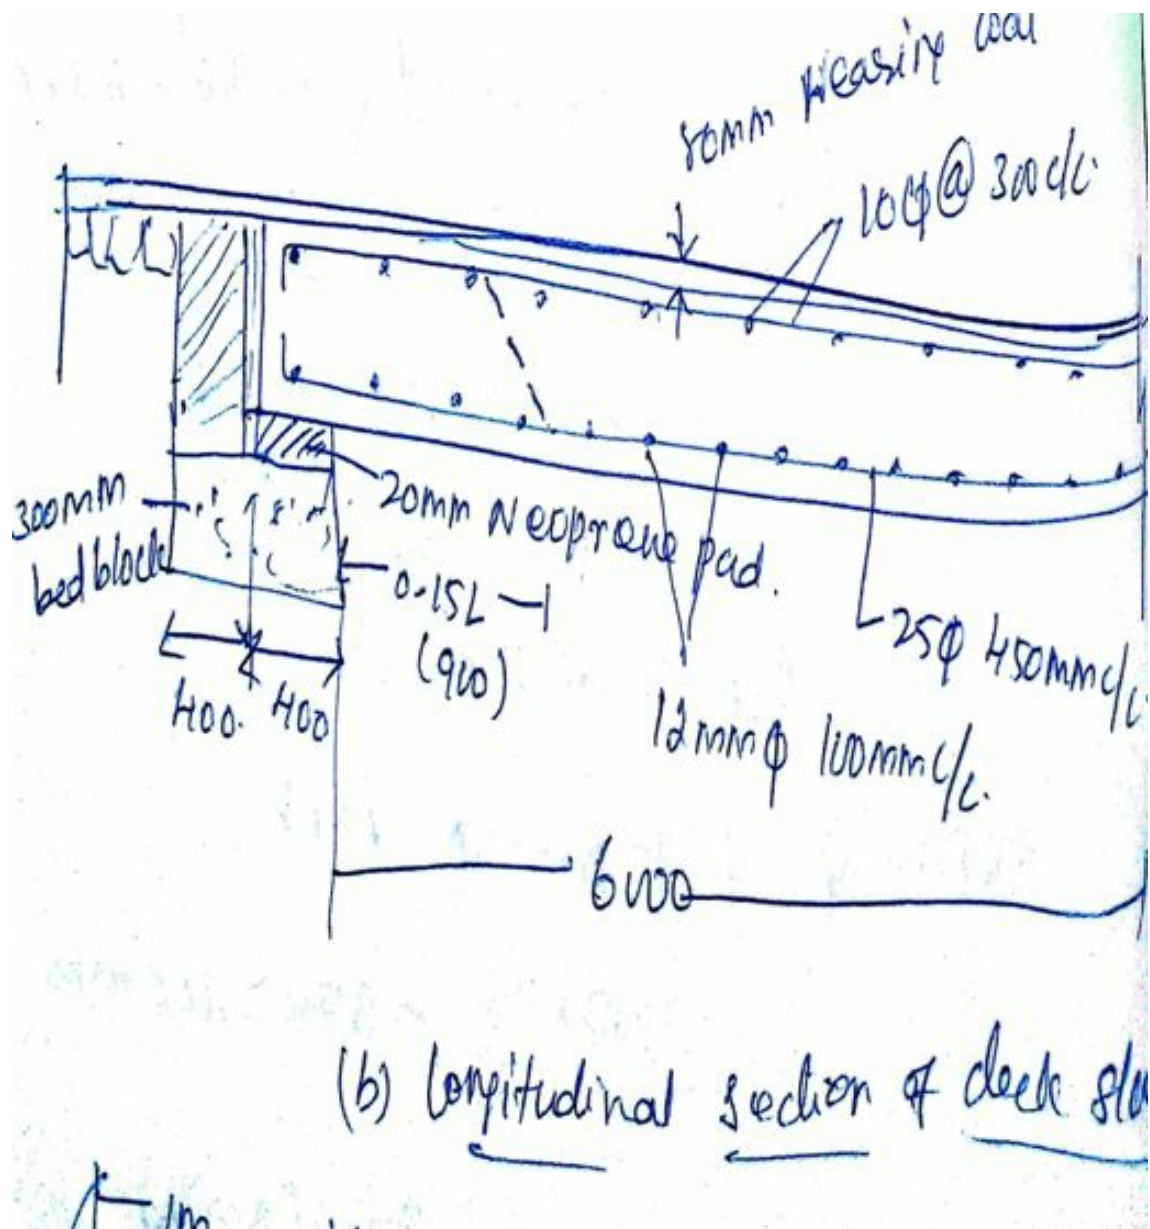 80mm Weasing coat
10ϕ@ 300c/c.
300mm
bed block
20mm Neoprene pad.
0.15L
(900)
25ϕ 450mmc/c
400. 400
12mmϕ 100mmc/c.
6000
(b) longitudinal section of deck sla
1m